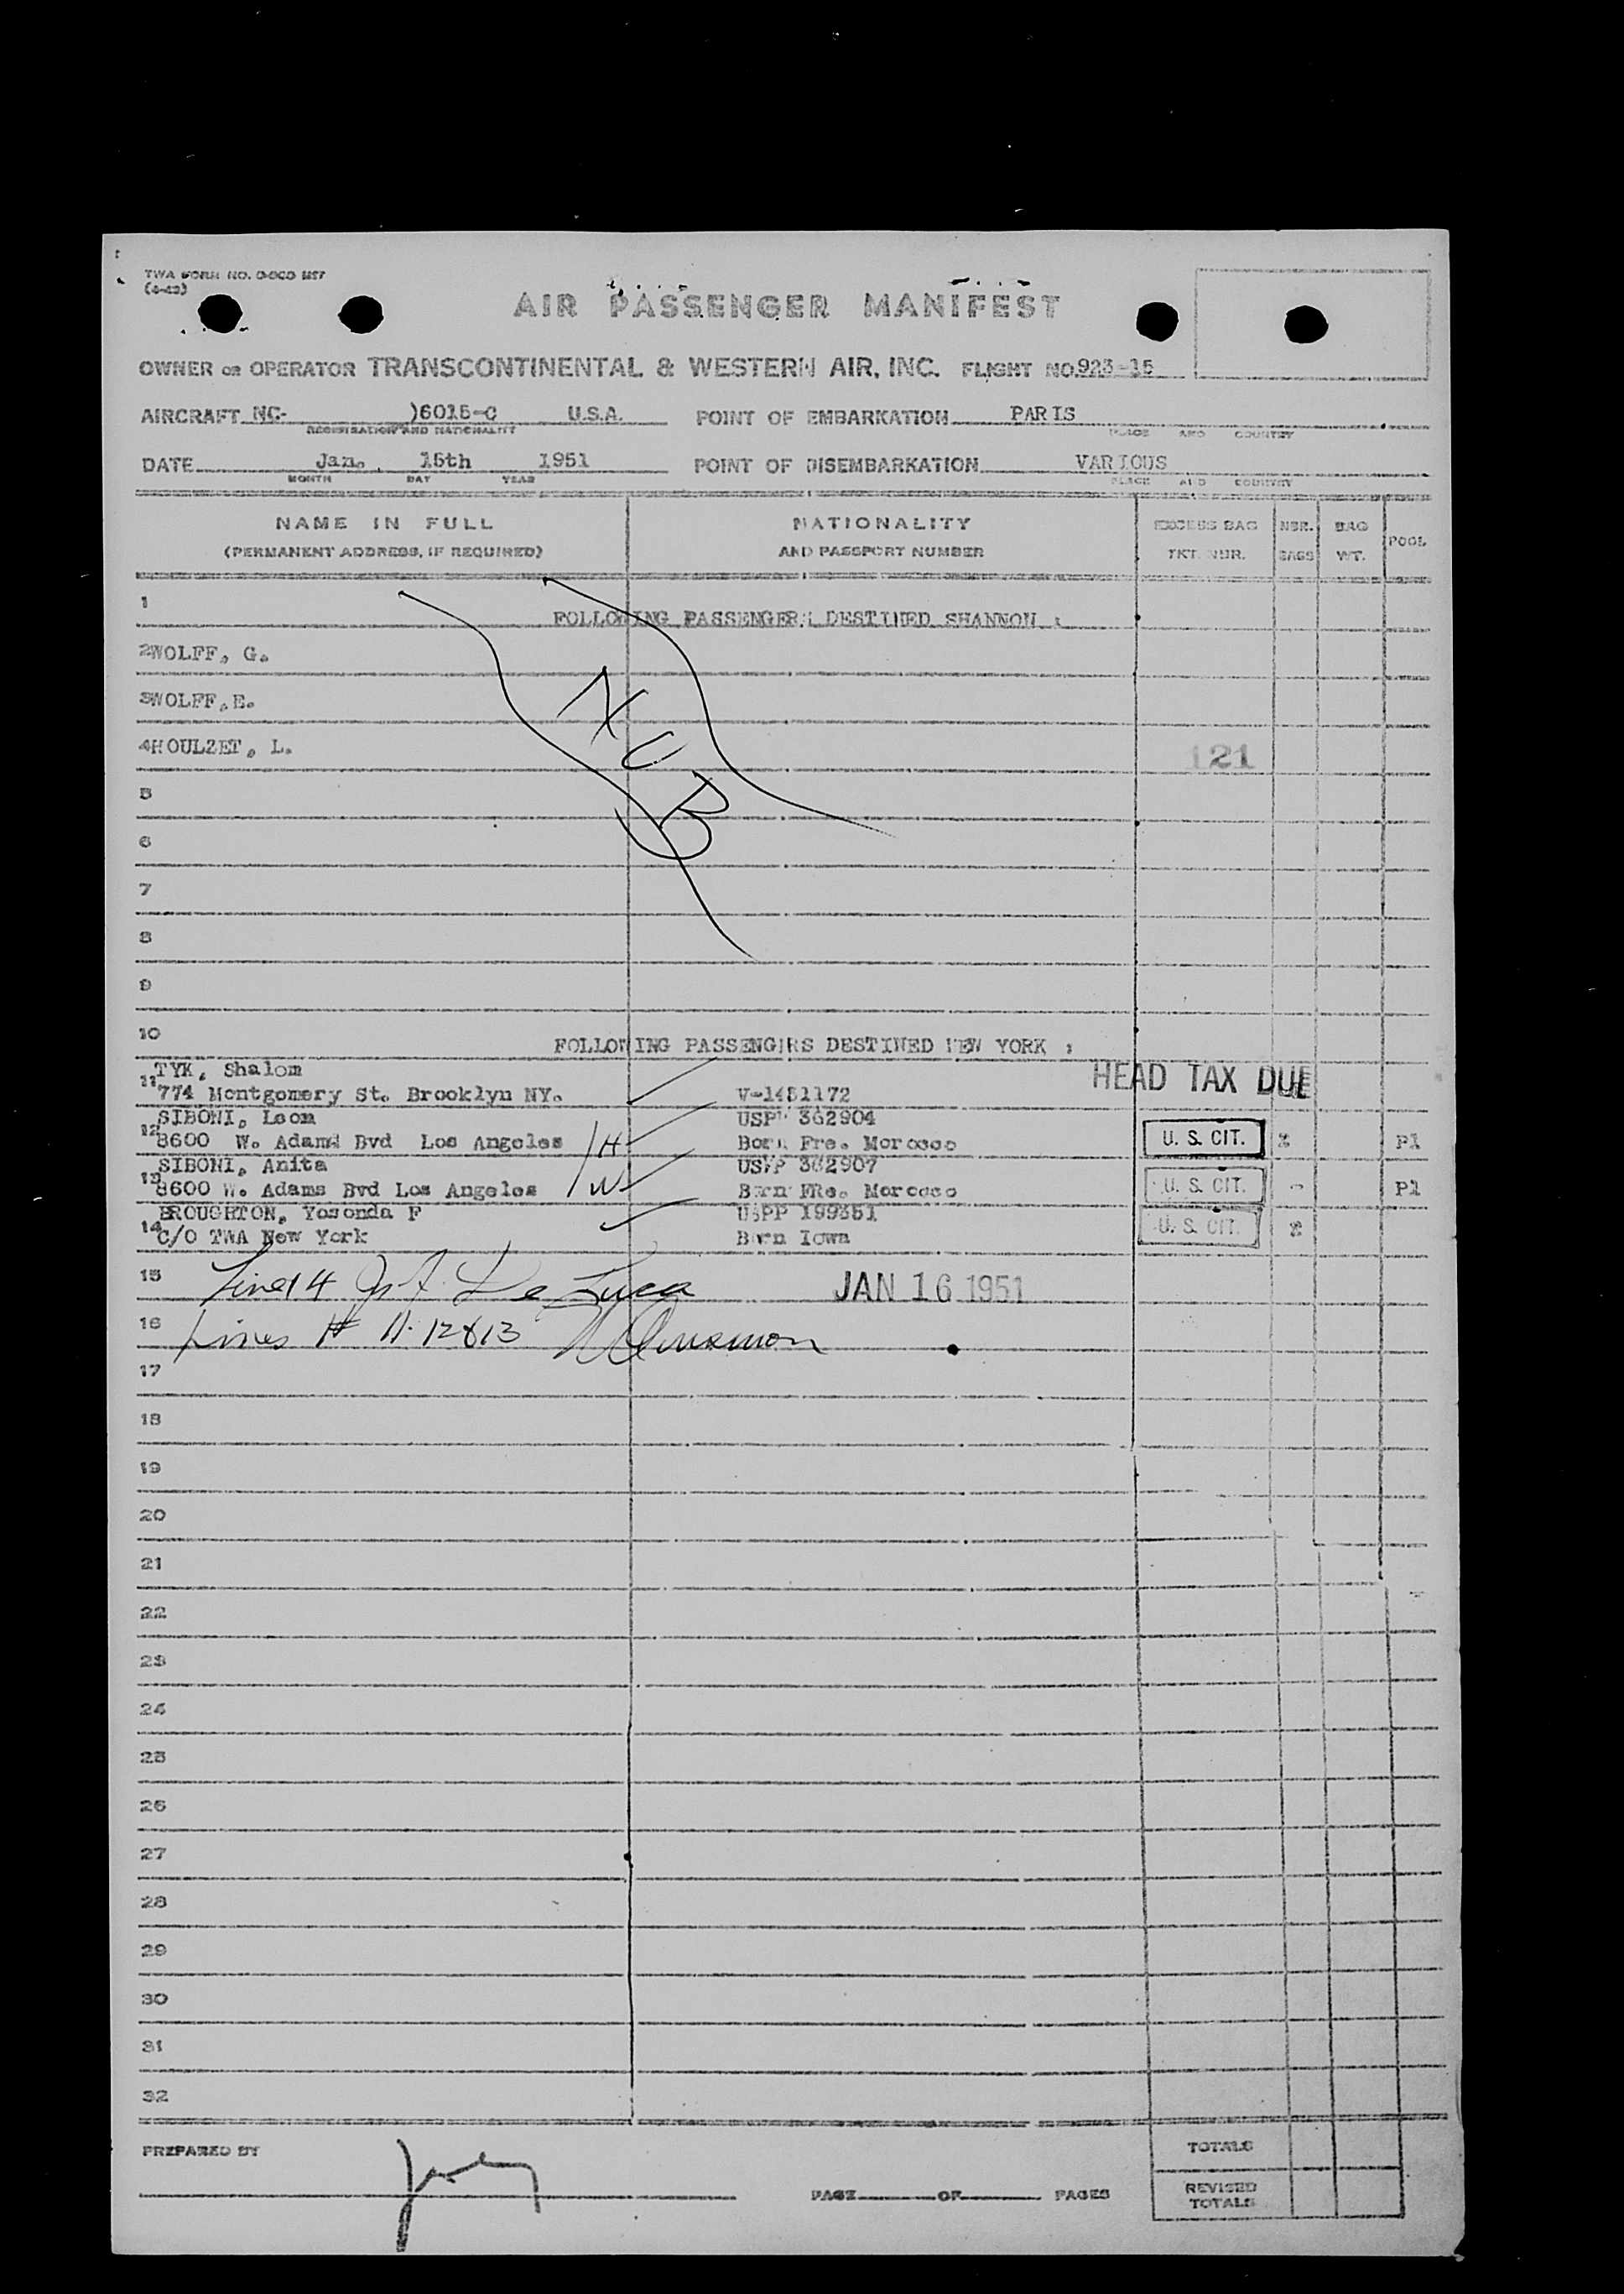 TWA FORM NO.
AIR PASSENGER MANIFEST
OWNER OR OPERATOR TRANSCONTINENTAL & WESTERN AIR, INC. FLIGHT NO. 923-15
AIRCRAFT NC- )6015-C U.S.A. POINT OF EMBARKATION PARIS
REGISTRATION AND NATIONALITY PLACE AND COUNTRY
DATE Jan. 15th 1951 POINT OF DISEMBARKATION VARIOUS
MONTH DAY YEAR PLACE AND COUNTRY
NAME IN FULL NATIONALITY EXCESS BAG NBR. BAG POOL
(PERMANENT ADDRESS, IF REQUIRED) AND PASSPORT NUMBER TKT. NBR. BAGS WT.
1 FOLLOWING PASSENGERS DESTINED SHANNON :
2 WOLFF, G.
3 WOLFF, E.
4 HOULZET, L. 121
5
6
7
8
9
10 FOLLOWING PASSENGERS DESTINED NEW YORK :
TYK, Shalom HEAD TAX DUE
11 774 Montgomery St. Brooklyn NY. V-1451172
SIBONI, Leon USPP 362904
12 8600 W. Adams Bvd Los Angeles H Born Fre. Morocco U. S. CIT. x P1
SIBONI, Anita USPP 362907
13 8600 W. Adams Bvd Los Angeles W Born FRe. Morocco U. S. CIT. - P1
BROUGHTON, Yosonda F USPP 199351
14 C/O TWA New York Born Iowa U. S. CIT. x
15 Line 14 De Luca JAN 16 1951
16 Lines
17
18
19
20
21
22
23
24
25
26
27
28
29
30
31
32
PREPARED BY TOTALS
PAGE OF PAGES REVISED
TOTALS